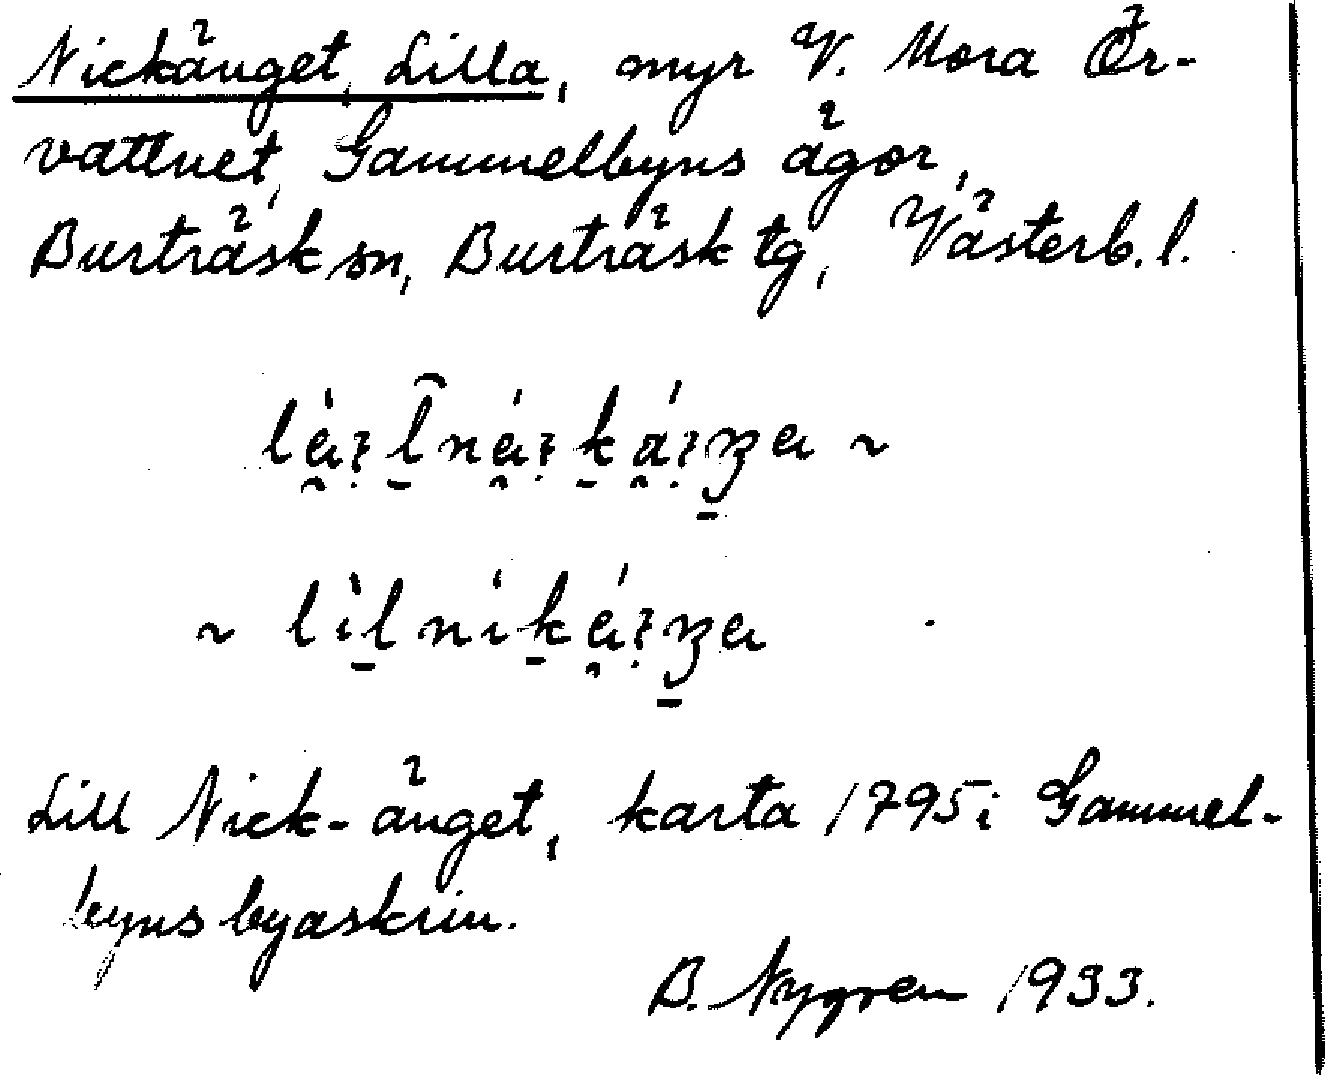 Nickänget, Lilla, myr V. Mora Ör-
vattnet, Gammelbyns ägor,
Burträsk sn, Burträsk tg, Västerb. l.
Lill Nick-änget, karta 1795 i Gammel-
byns byaskrin.
B. Nygren 1933.